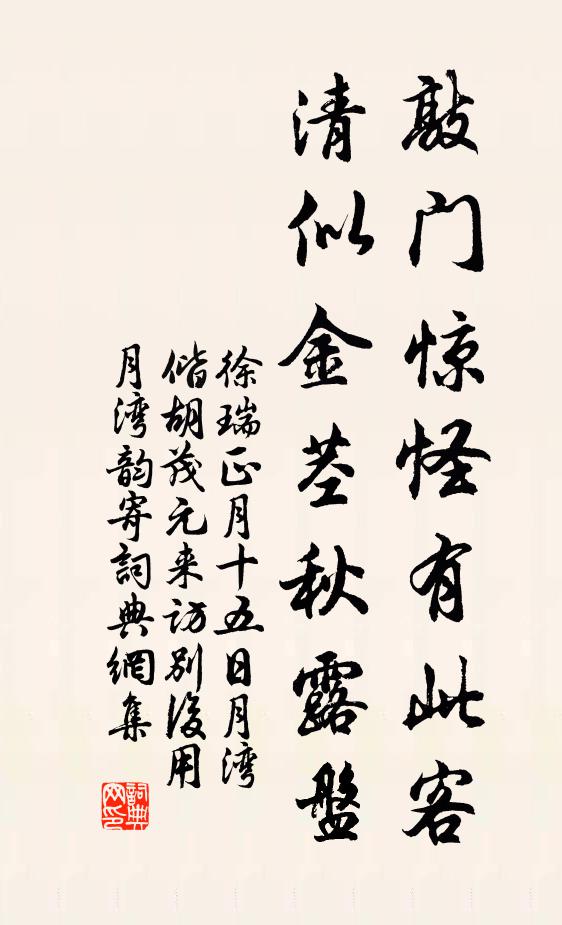 敲门惊怪有此客
清似金茎秋露盤
徐瑞正月十五日月湾
偕胡茂元来访别後用
月湾韵寄詞典網集
詞典
网印